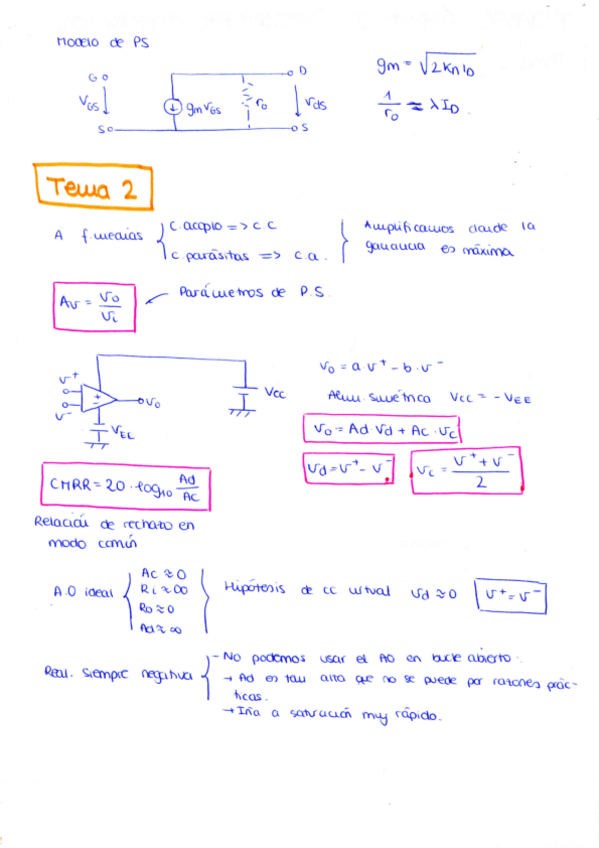 Modelo de PS
G
D
gm = √2 Kn ID
VGS
gm VGS
ro
Vds
1/ro ≈ λ ID
S
S
Tema 2
A f. medias { C. acoplo => c.c
C. parásitas => c.a.
Amplificamos donde la
ganancia es máxima
Av = Vo/Vi
Parámetros de P.S.
V+
V-
+
-
Vo
VCC
VEE
Vo = a V+ - b · V-
Alim. Simétrica VCC = - VEE
Vo = Ad Vd + Ac · Vc
Vd = V+ - V-
Vc = (V+ + V-)/2
CMRR = 20 · log10 Ad/Ac
Relación de rechazo en
modo común
A.O ideal { Ac ≈ 0
Ri ≈ ∞
Ro ≈ 0
Ad ≈ ∞
Hipótesis de cc virtual Vd ≈ 0
V+ = V-
Real. Siempre negativa { - No podemos usar el AO en bucle abierto.
→ Ad es tan alta que no se puede por razones prác-
ticas.
→ Iría a saturación muy rápido.